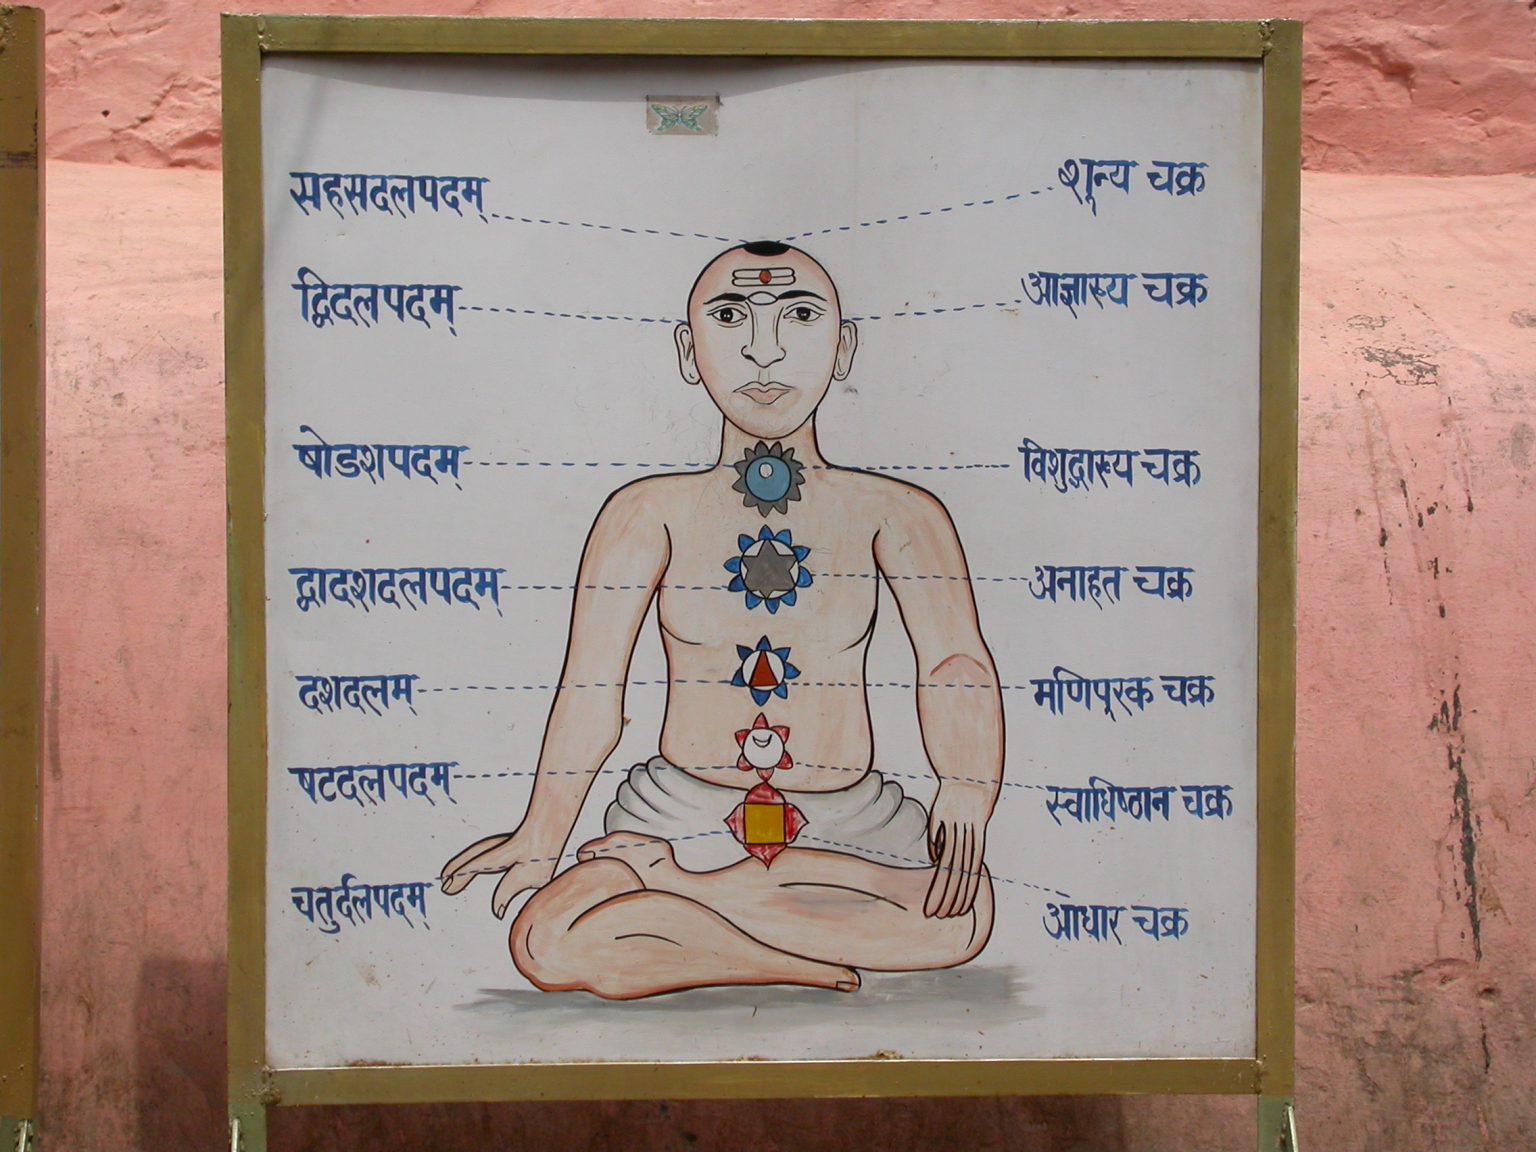 सहसदलपदम् शून्य चक्र
द्विदलपदम् आज्ञारूय चक्र
षोडशपदम् विशुद्धारूय चक्र
द्वादशदलपदम् अनाहत चक्र
दशदलम् मणिपूरक चक्र
षटदलपदम् स्वाधिष्ठान चक्र
चतुर्दलपदम् आधार चक्र